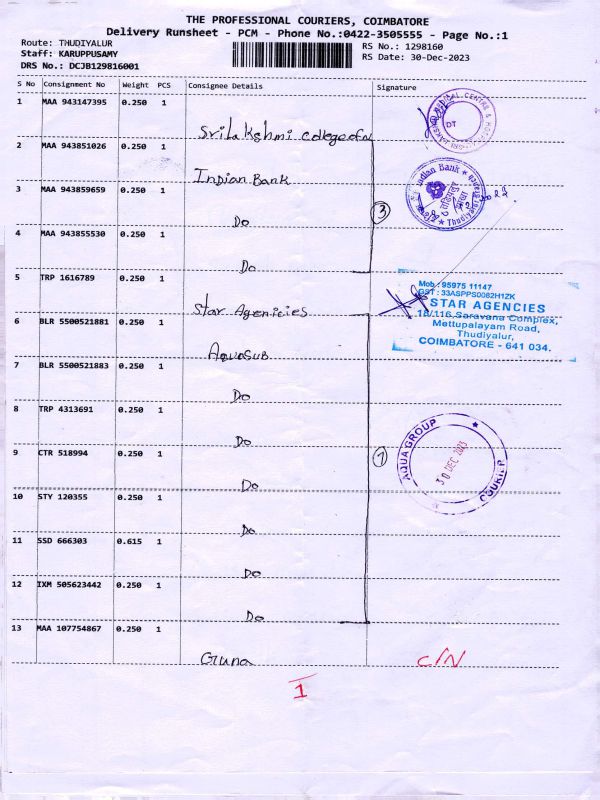 THE PROFESSIONAL COURIERS, COIMBATORE
Delivery Runsheet - PCM - Phone No.:0422-3505555 - Page No.:1
Route: THUDIYALUR
RS No.: 1298160
Staff: KARUPPUSAMY
RS Date: 30-Dec-2023
DRS No.: DCJB129816001
S No Consignment No Weight PCS Consignee Details Signature
1 MAA 943147395 0.250 1
Srilakshmi college of
DT
2 MAA 943851026 0.250 1
Indian Bank
Indian Bank
Thudiyalur
3 MAA 943859659 0.250 1
Do
3
4 MAA 943855530 0.250 1
Do
5 TRP 1616789 0.250 1
Star Agenicies
Mob: 95975 11147
GST: 33ASPPS0062H1ZK
STAR AGENCIES
18/116, Saravana Complex,
Mettupalayam Road,
Thudiyalur,
COIMBATORE - 641 034.
6 BLR 5500521881 0.250 1
AquaSub
7 BLR 5500521883 0.250 1
Do
8 TRP 4313691 0.250 1
Do
9 CTR 518994 0.250 1
Do
7
AQUA GROUP
30 DEC 2023
COURIER
10 STY 120355 0.250 1
Do
11 SSD 666303 0.615 1
Do
12 IXM 505623442 0.250 1
Do
13 MAA 107754867 0.250 1
Guna
C/N
1